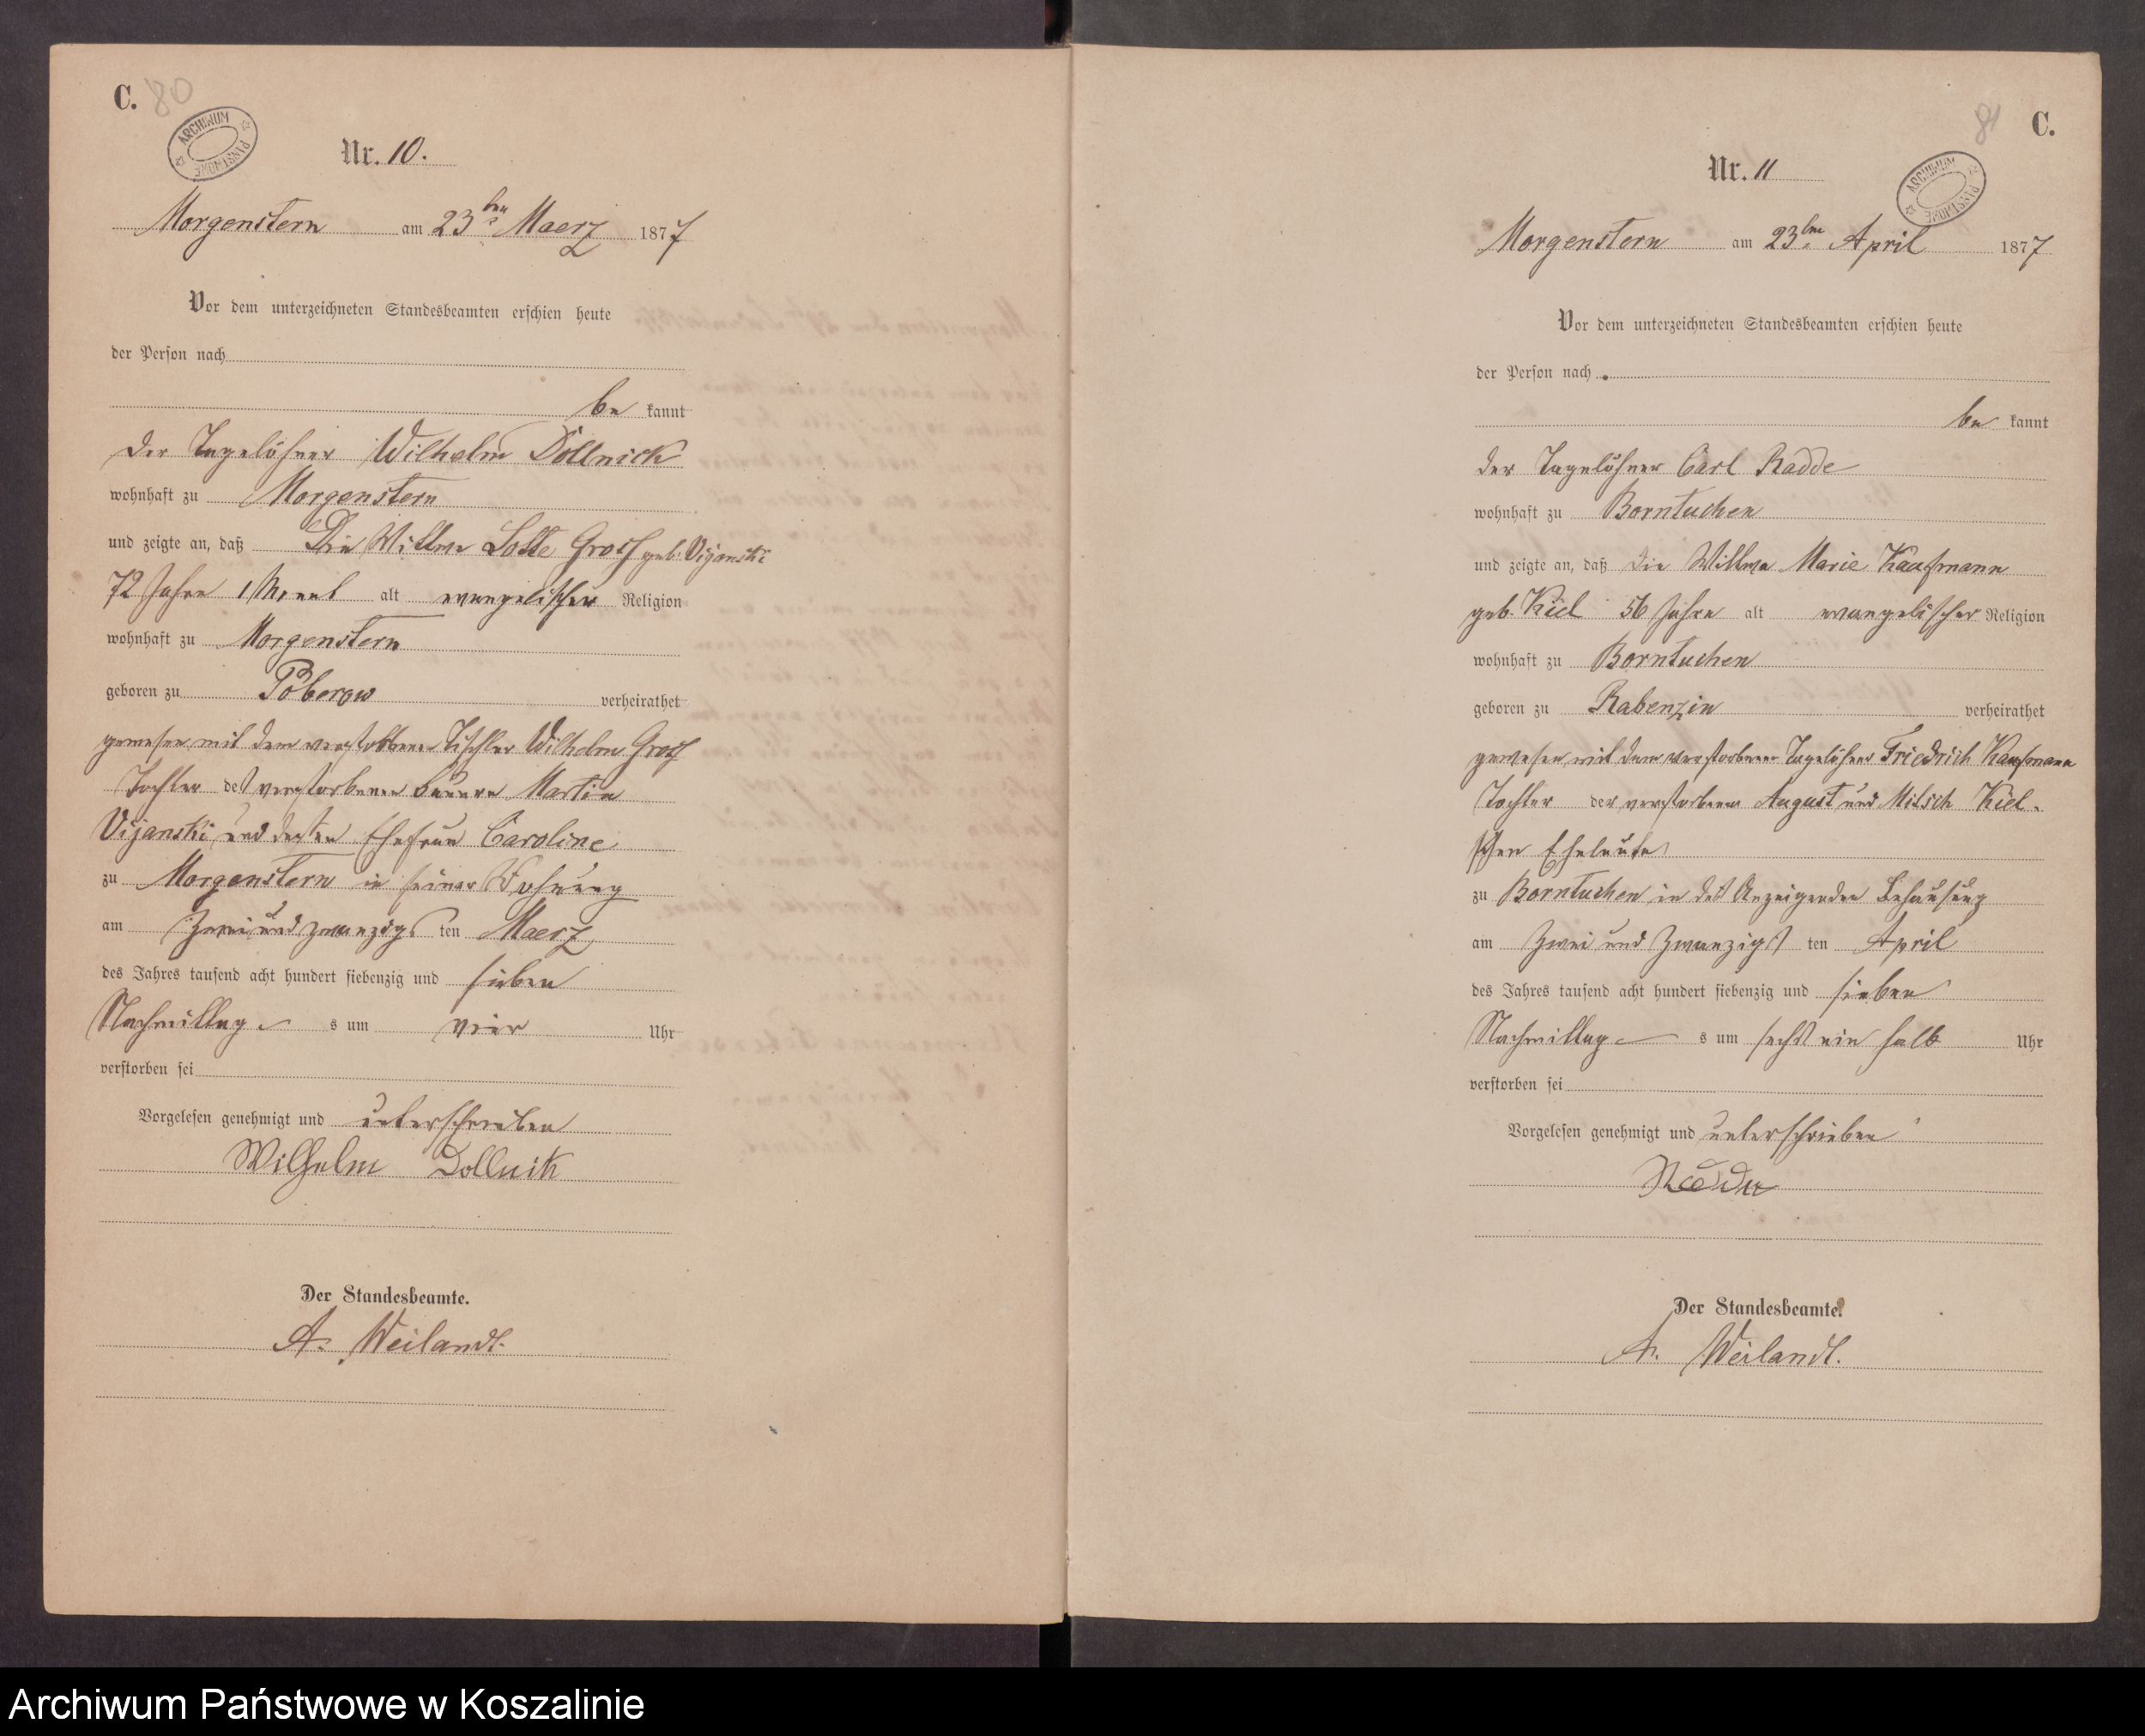 C. 80
ARCHIWUM PAŃSTWOWE
Nr. 10.
Morgenstern am 23ten Maerz 1877
Vor dem unterzeichneten Standesbeamten erschien heute
der Person nach
be kannt
der Tagelöhner Wilhelm Dollnick
wohnhaft zu Morgenstern
und zeigte an, daß Die Wittwe Lotte Groß geb. Vijanski
72 Jahre 1 Monat alt evangelischer Religion
wohnhaft zu Morgenstern
geboren zu Poberow verheirathet
gewesen mit dem verstorbenen Tischler Wilhelm Groß
Tochter des verstorbenen Bauern Martin
Vijanski und dessen Ehefrau Caroline
zu Morgenstern in seiner Wohnung
am Zwei und zwanzigs ten Maerz
des Jahres tausend acht hundert siebenzig und sieben
Nachmittag s um vier Uhr
verstorben sei
Vorgelesen genehmigt und unterschrieben
Wilhelm Dollnik
Der Standesbeamte.
A. Weilandt.
81 C.
ARCHIWUM PAŃSTWOWE
Nr. 11
Morgenstern am 23ten April 1877
Vor dem unterzeichneten Standesbeamten erschien heute
der Person nach
be kannt
der Tagelöhner Carl Radde
wohnhaft zu Borntuchen
und zeigte an, daß die Wittwe Marie Kaufmann
geb. Kiel 56 Jahre alt evangelischer Religion
wohnhaft zu Borntuchen
geboren zu Rabenzin verheirathet
gewesen mit dem verstorbenen Tagelöhner Friedrich Kaufmann
Tochter der verstorbenen August und Kiel-
schen Eheleute
zu Borntuchen in des Anzeigenden Behausung
am Zwei und Zwanzigst ten April
des Jahres tausend acht hundert siebenzig und sieben
Nachmittag s um sechs ein halb Uhr
verstorben sei
Vorgelesen genehmigt und unterschrieben
Der Standesbeamte.
A. Weilandt.
Archiwum Państwowe w Koszalinie